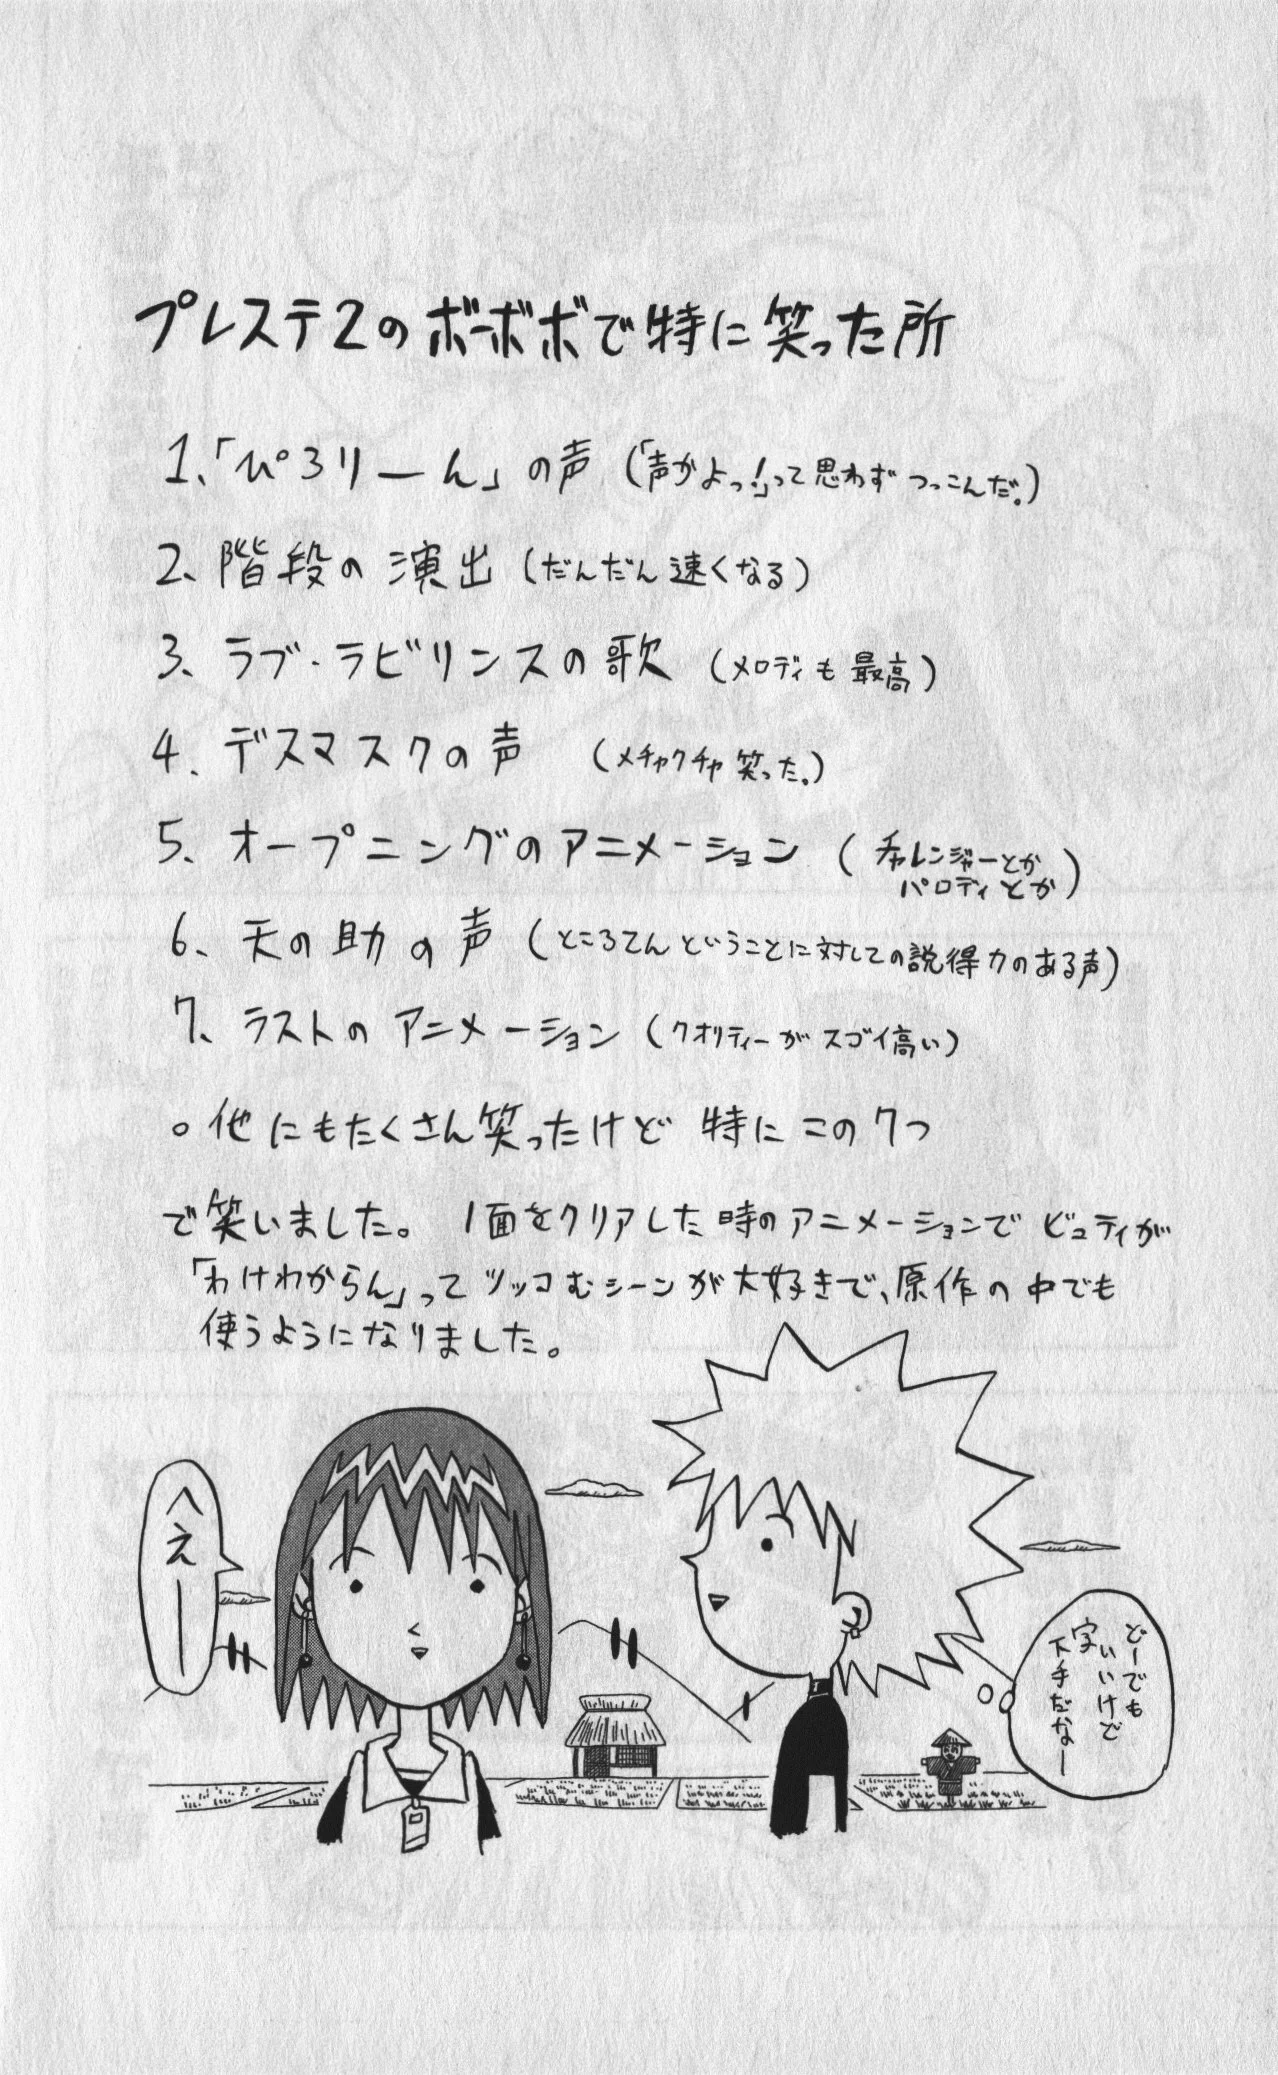 プレステ2のボーボボで特に笑った所
1、「ぴろりーん」の声(「声かよっ!」って思わずつっこんだ。)
2、階段の演出(だんだん速くなる)
3、ラブ・ラビリンスの歌(メロディも最高)
4、デスマスクの声(メチャクチャ笑った。)
5、オープニングのアニメーション(チャレンジャーとか
パロディとか)
6、天の助の声(ところてんということに対しての説得力のある声)
7、ラストのアニメーション(クオリティーがスゴイ高い)
○他にもたくさん笑ったけど特にこの7つ
で笑いました。1面をクリアした時のアニメーションでビュティが
「わけわからん」ってツッコむシーンが大好きで、原作の中でも
使うようになりました。
へえー
どーでも
いいけど
字
下手だなー